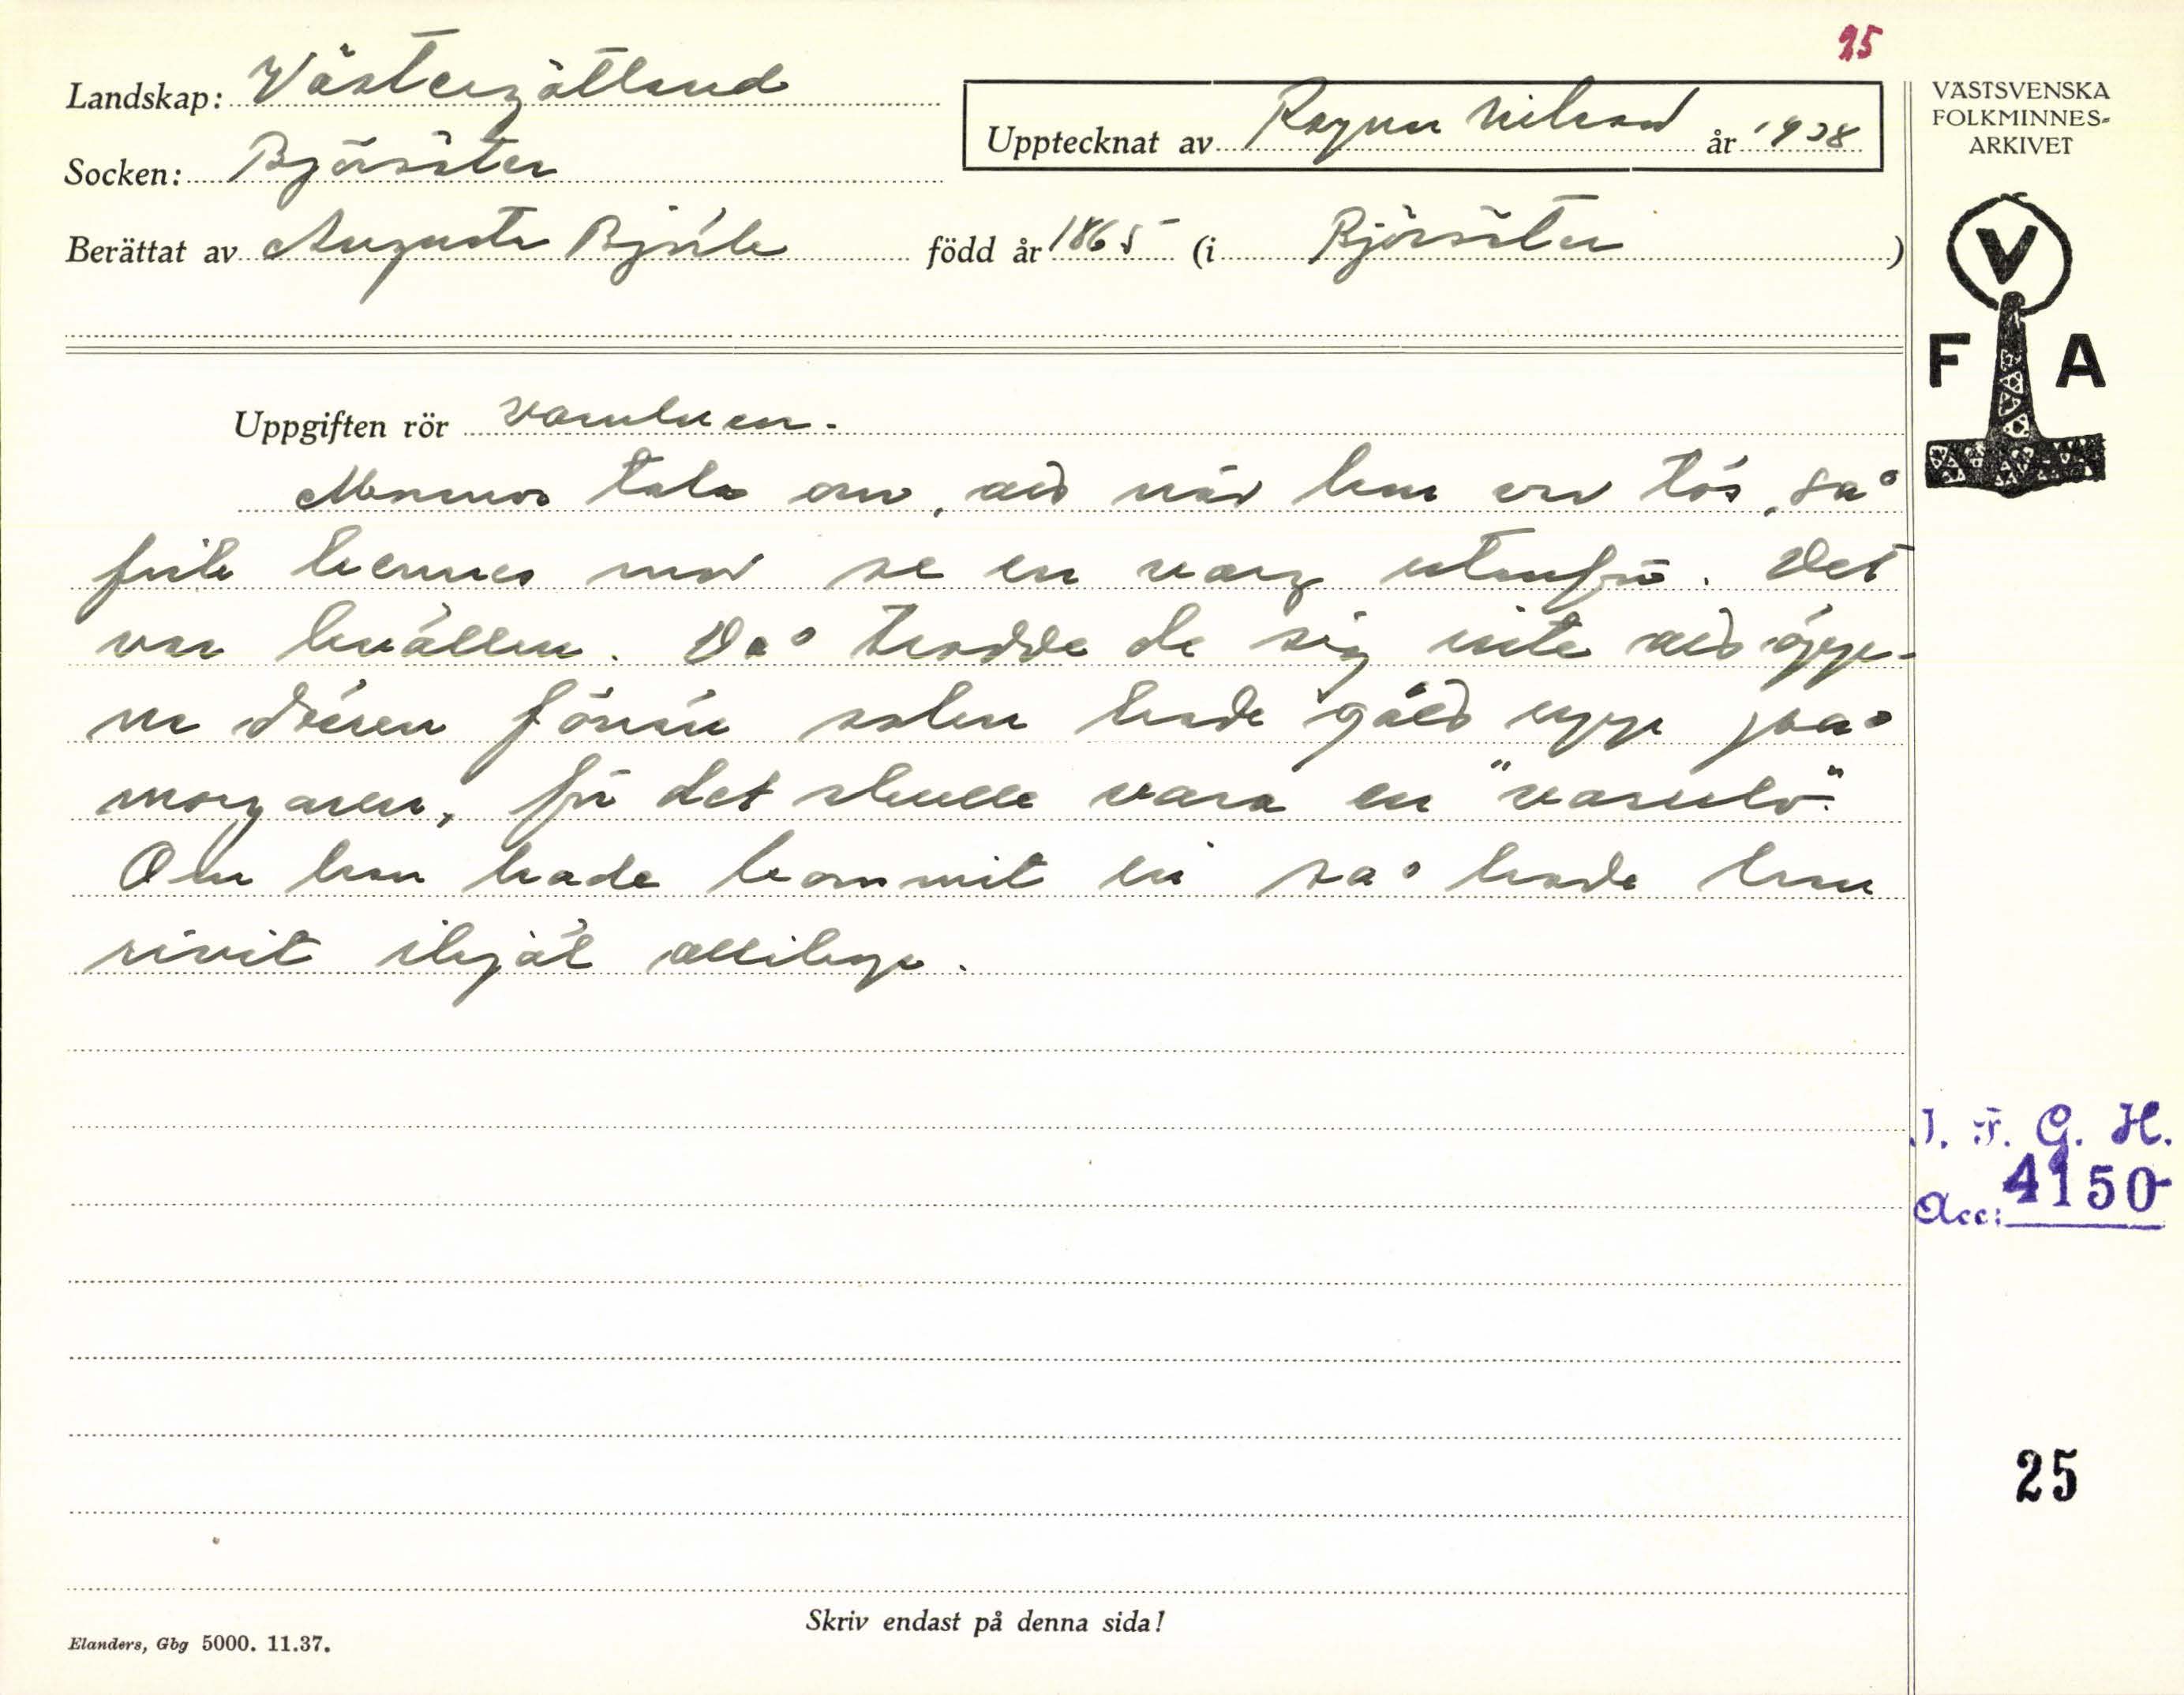 25
Landskap: Västergötland
Socken: Björsäter
Upptecknat av Ragnar Nilsson år 1938
Berättat av Augusta Björk född år 1865 (i Björsäter)
VÄSTSVENSKA
FOLKMINNES-
ARKIVET
V
F A
Uppgiften rör varulven.
Mormor tala om, att när hon var tös, så
fick hennes mor se en varg utanför. Det
var kvällen. Då trodde de sig inte att öpp-
na dörren förrän solen hade gått upp på
morgonen, för det skulle vara en "varulv".
Om han hade kommit in så hade han
rivit ihjäl allihop.
I. F. G. H.
Acc: 4150
25
Skriv endast på denna sida!
Elanders, Gbg 5000. 11.37.